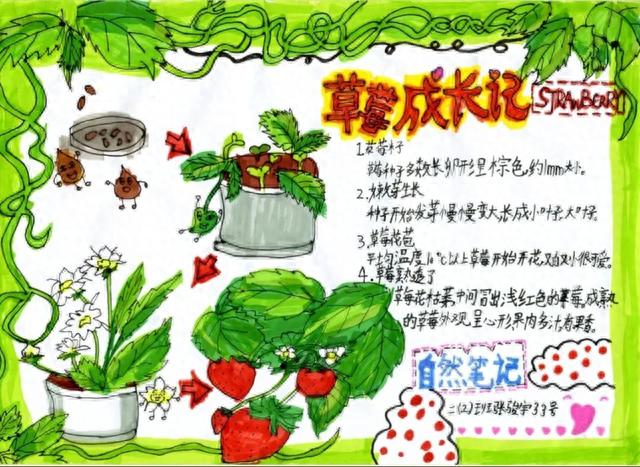 草莓成长记
STRAWBERRY
1.
草莓种子多数长卵形呈棕色,约1mm大小。
2.嫩芽生长
种子开始发芽慢慢变大,长成小叶子,大叶子。
3.草莓花苞
平均温度10℃以上草莓开始开花,又白又小很可爱。
4.草莓熟透了
草莓花枯萎,中间冒出浅红色的草莓,成熟
的草莓外观呈心形果肉多汁有果香。
自然笔记
二(2)班张骏宇33号